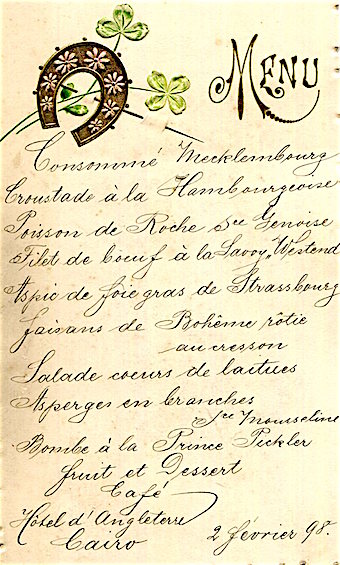 MENU
Consommé Mecklembourg
Croustade à la Hambourgeoise
Poisson de Roche Sce Genoise
Filet de boeuf à la Savoy „Westend
Aspic de foie gras de Strassbourg
faisans de Bohême rôtie
au cresson
Salade coeurs de laitues
Asperges en branches
Sce Mousseline
Bombe à la Prince Pickler
fruit et Dessert
Café
Hôtel d'Angleterre
Cairo
2 février 98.